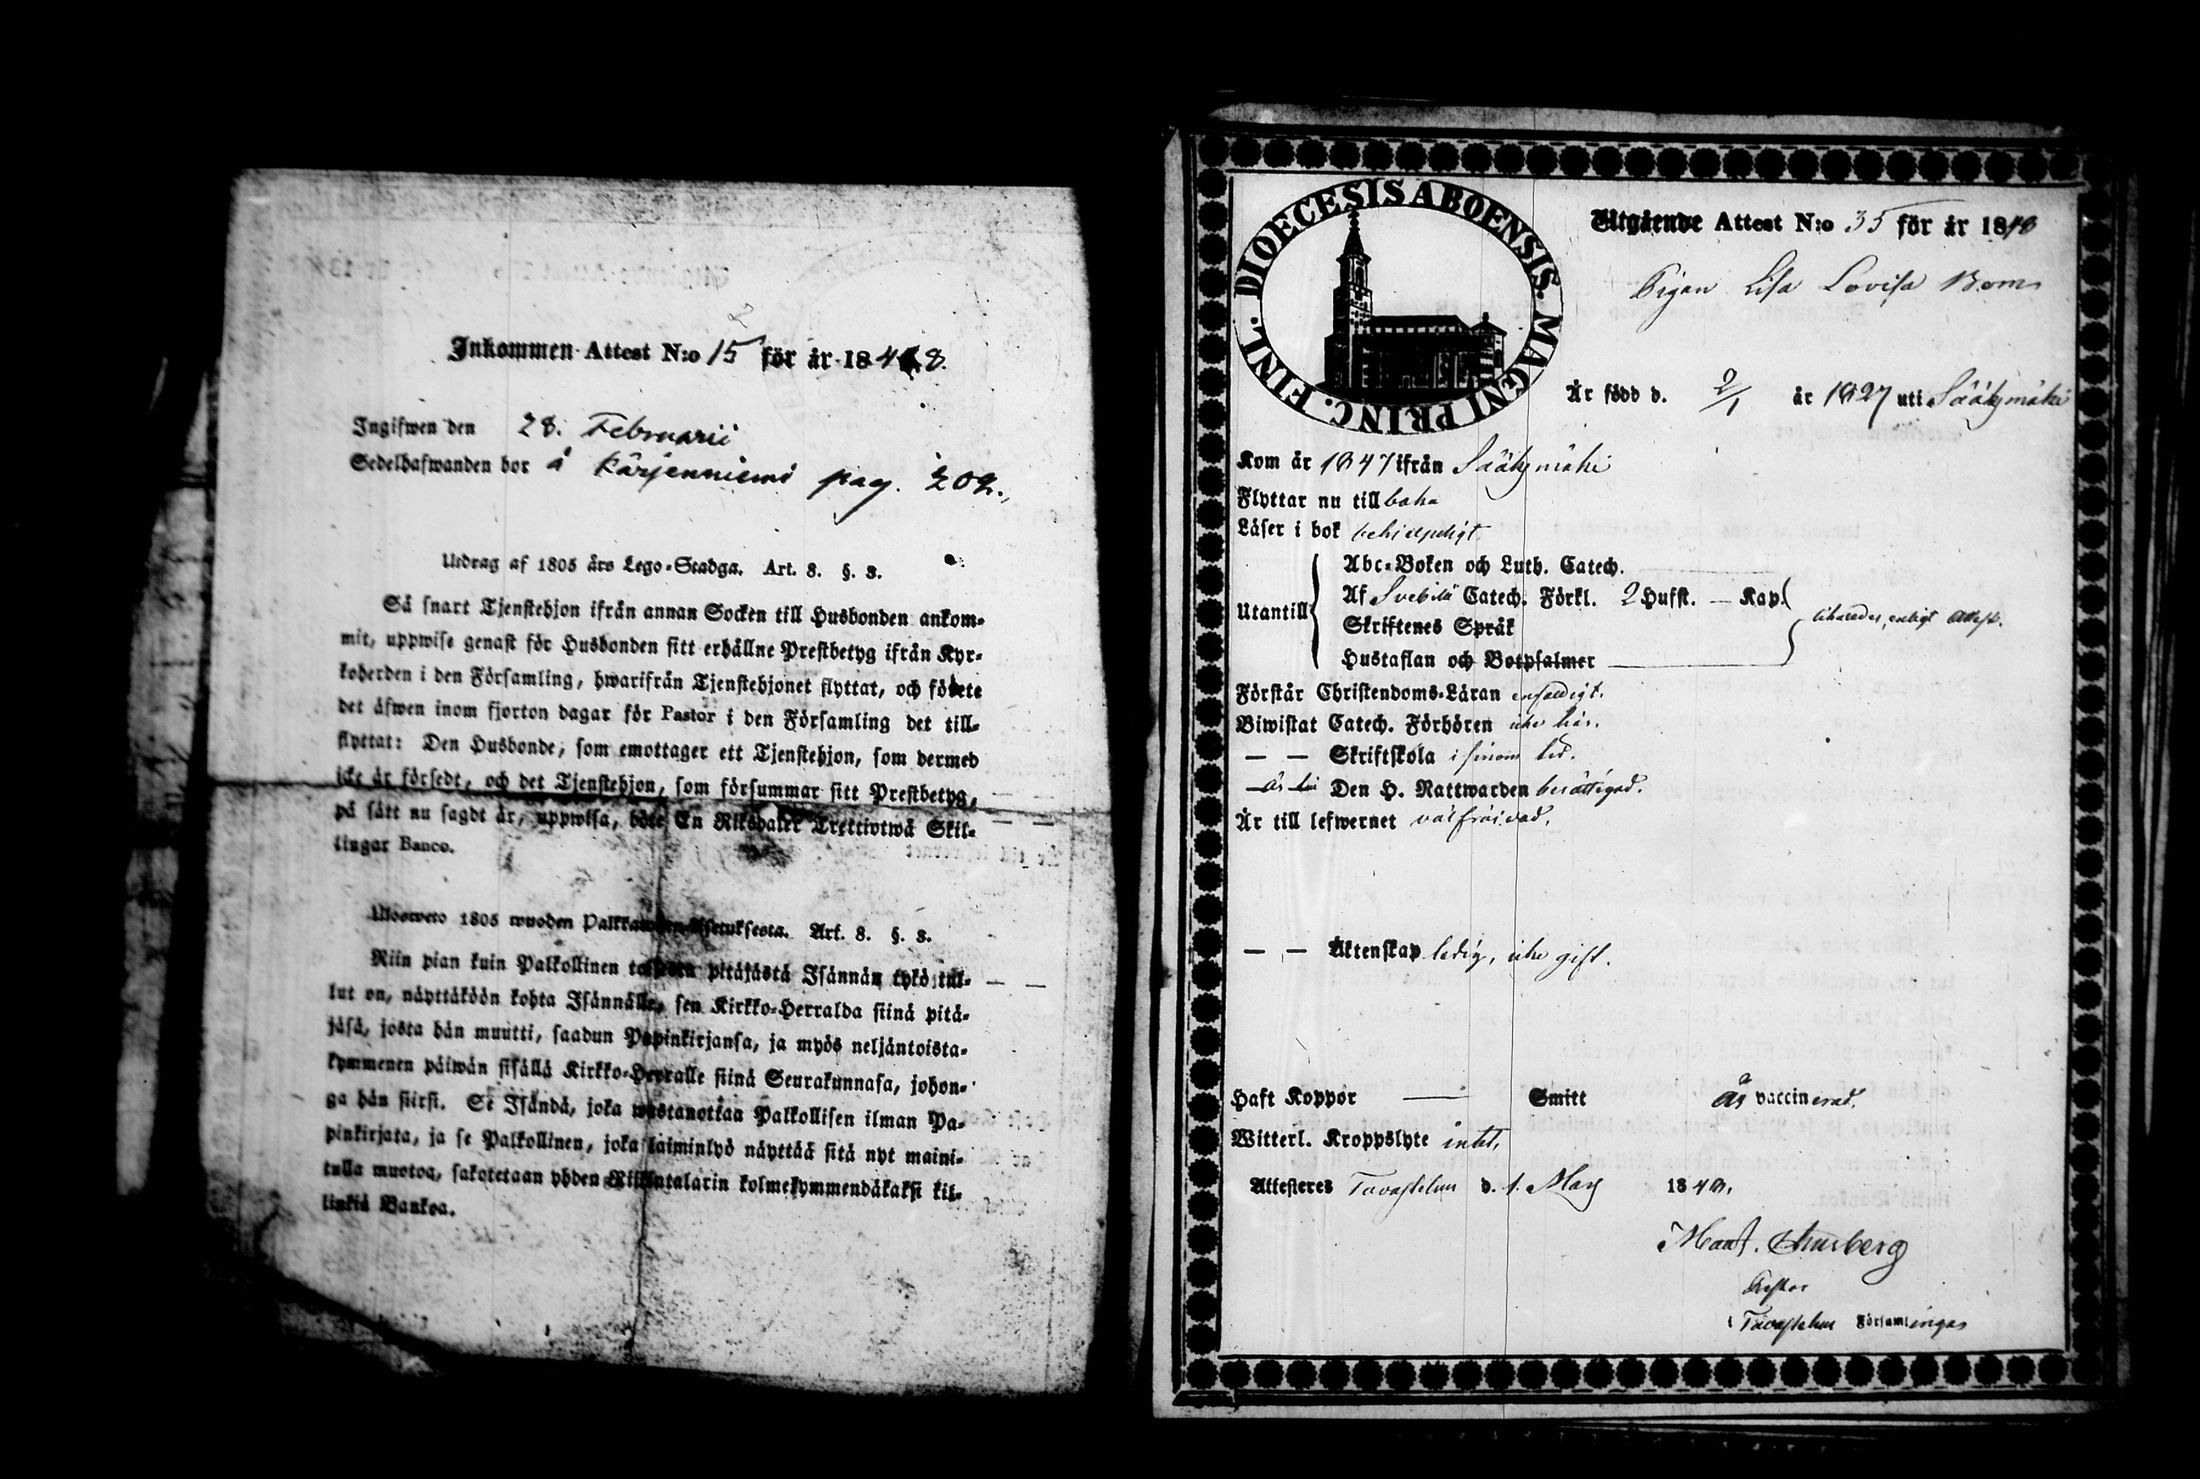 Inkommen Attest N:o 15 för år 1848.
Ingifwen den 28. Februarii
Sedelhafwanden bor å Kärjenniemi pag. 202.
Utdrag af 1805 års Lego-Stadga. Art. 8. §. 3.
Så snart Tjenstehjon ifrån annan Socken till Husbonden ankom-
mit, uppwise genast för Husbonden sitt erhållne Prestbetyg ifrån Kyr-
koherden i den Församling, hwarifrån Tjenstehjonet flyttat, och förete
det äfwen inom fjorton dagar för Pastor i den Församling det till-
flyttat: Den Husbonde, som emottager ett Tjenstehjon, som dermed
icke är försedt, och det Tjenstehjon, som försummar sitt Prestbetyg,
på sätt nu sagdt är, uppwisa, böte En Riksdaler Trettiotwå Skil-
lingar Banco.
Ulosweto 1805 wuoden Palkkawäen-Asetuksesta. Art. 8. §. 3.
Niin pian kuin Palkollinen toisesta pitäjästä Isännän tykö tul-
lut on, näyttäköön kohta Isännälle, sen Kirkko-Herralda siinä pitä-
jäsä, josta hän muutti, saadun Papinkirjansa, ja myös neljäntoista-
kymmenen päiwän sisällä Kirkko-Herralle siinä Seurakunnasa, johon-
ga hän siirsi. Se Isändä, joka wastanottaa Palkollisen ilman Pa-
pinkirjata, ja se Palkollinen, joka laiminlyö näyttää sitä nyt maini-
tulla muotoa, sakotetaan yhden Riikintalarin kolmekymmendäkaksi kil-
linkiä Bankoa.
DIOECESIS ABOENSIS. MAGNI PRINC. FINL.
Utgående Attest N:o 35 för år 1848
Pigan Lisa Lovisa
Är född d. 2/1 år 1827 uti Sääksmäki
Kom år 1847 ifrån Sääksmäki
Flyttar nu till baka
Läser i bok behjelpligt
Utantill
Abc-Boken och Luth. Catech.
Af Svebilii Catech. Förkl. 2 Hufst. — Kap.
Skriftenes Språk
Hustaflan och Botpsalmer
enligt attest.
Förstår Christendoms-Läran enfaldigt.
Biwistat Catech. Förhören icke här.
— — Skriftskola i sinom tid.
— är till Den H. Nattwarden berättigad.
Är till lefwernet välfräjdad.
— — Äktenskap ledig, icke gift.
Haft Koppor — Smitt är vaccinerad.
Witterl. Kroppslyte intet,
Attesteres Tavastehus d. 1. Mars 1848.
Pastor
i Tavastehus Församlingar